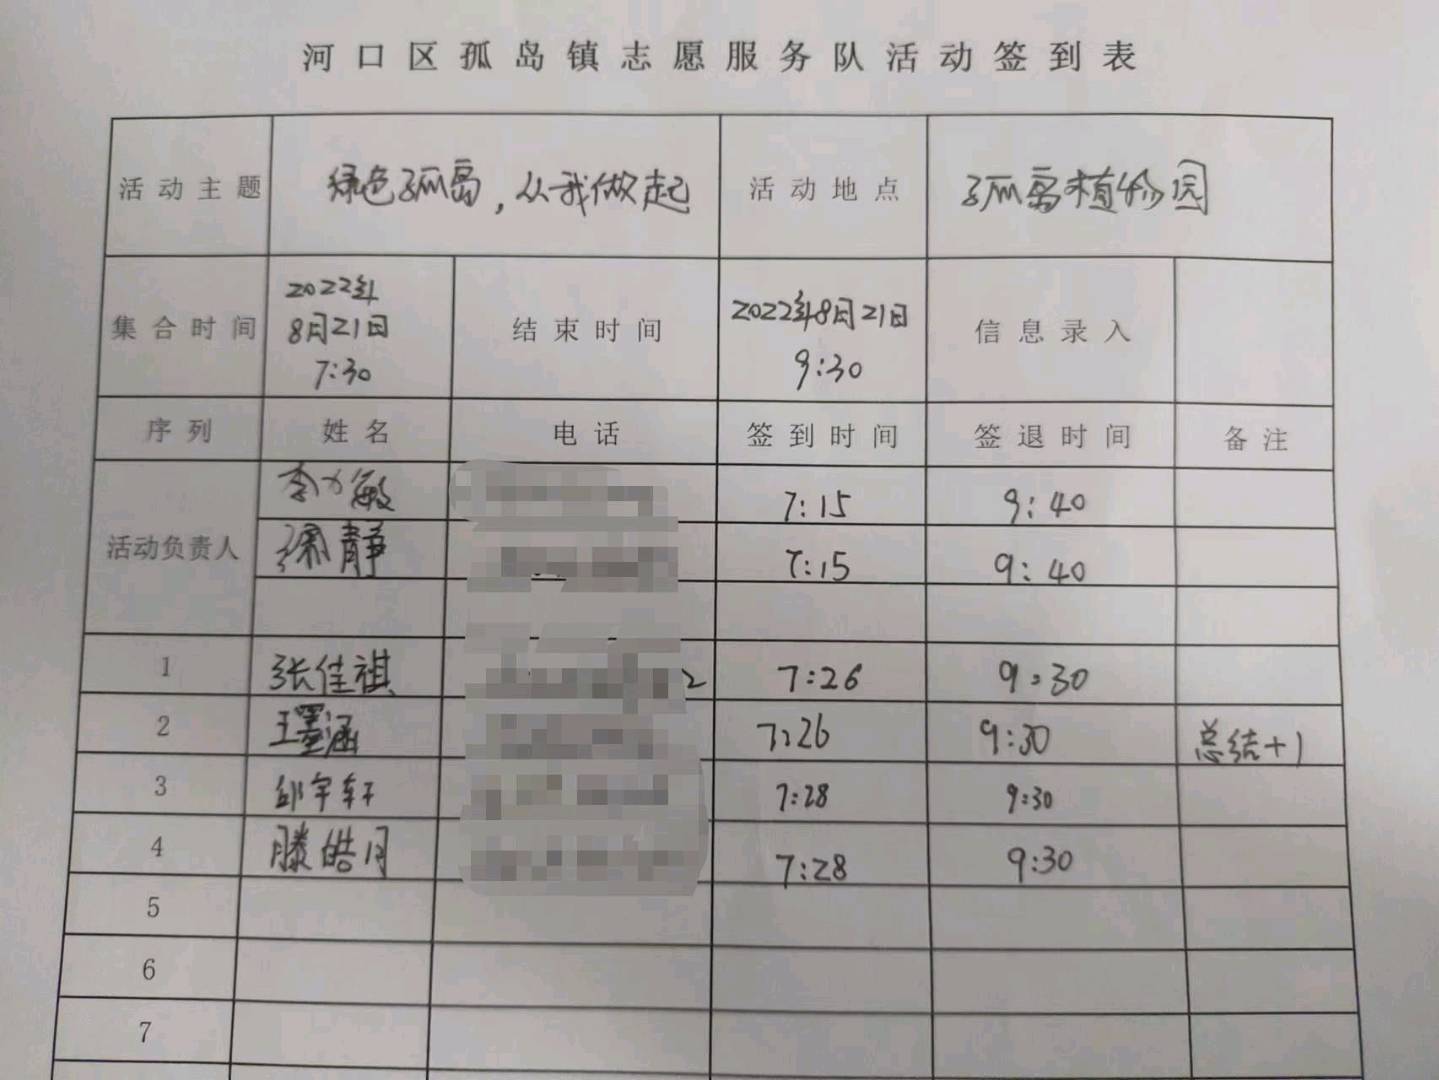 河口区孤岛镇志愿服务队活动签到表
活动主题 绿色孤岛，从我做起 活动地点 孤岛植物园
集合时间 2022年 8月21日 7:30 结束时间 2022年8月21日 9:30 信息录入
序列 姓名 电话 签到时间 签退时间 备注
活动负责人
李力敏 7:15 9:40
静 7:15 9:40
1 张佳祺 2 7:26 9:30
2 王墨涵 7:26 9:30 总结+1
3 邱宇轩 7:28 9:30
4 滕皓月 7:28 9:30
5
6
7